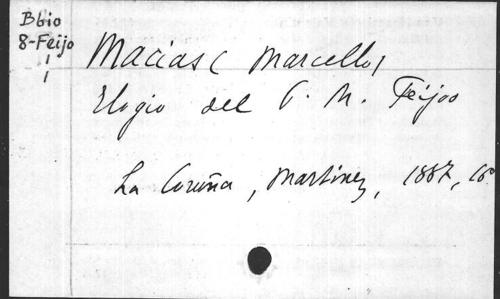 Bbio
8-Feijo
1
1
Macias (Marcello)
Elogio del P. M. Feijoo
La Coruña, Martinez, 1887, 16º